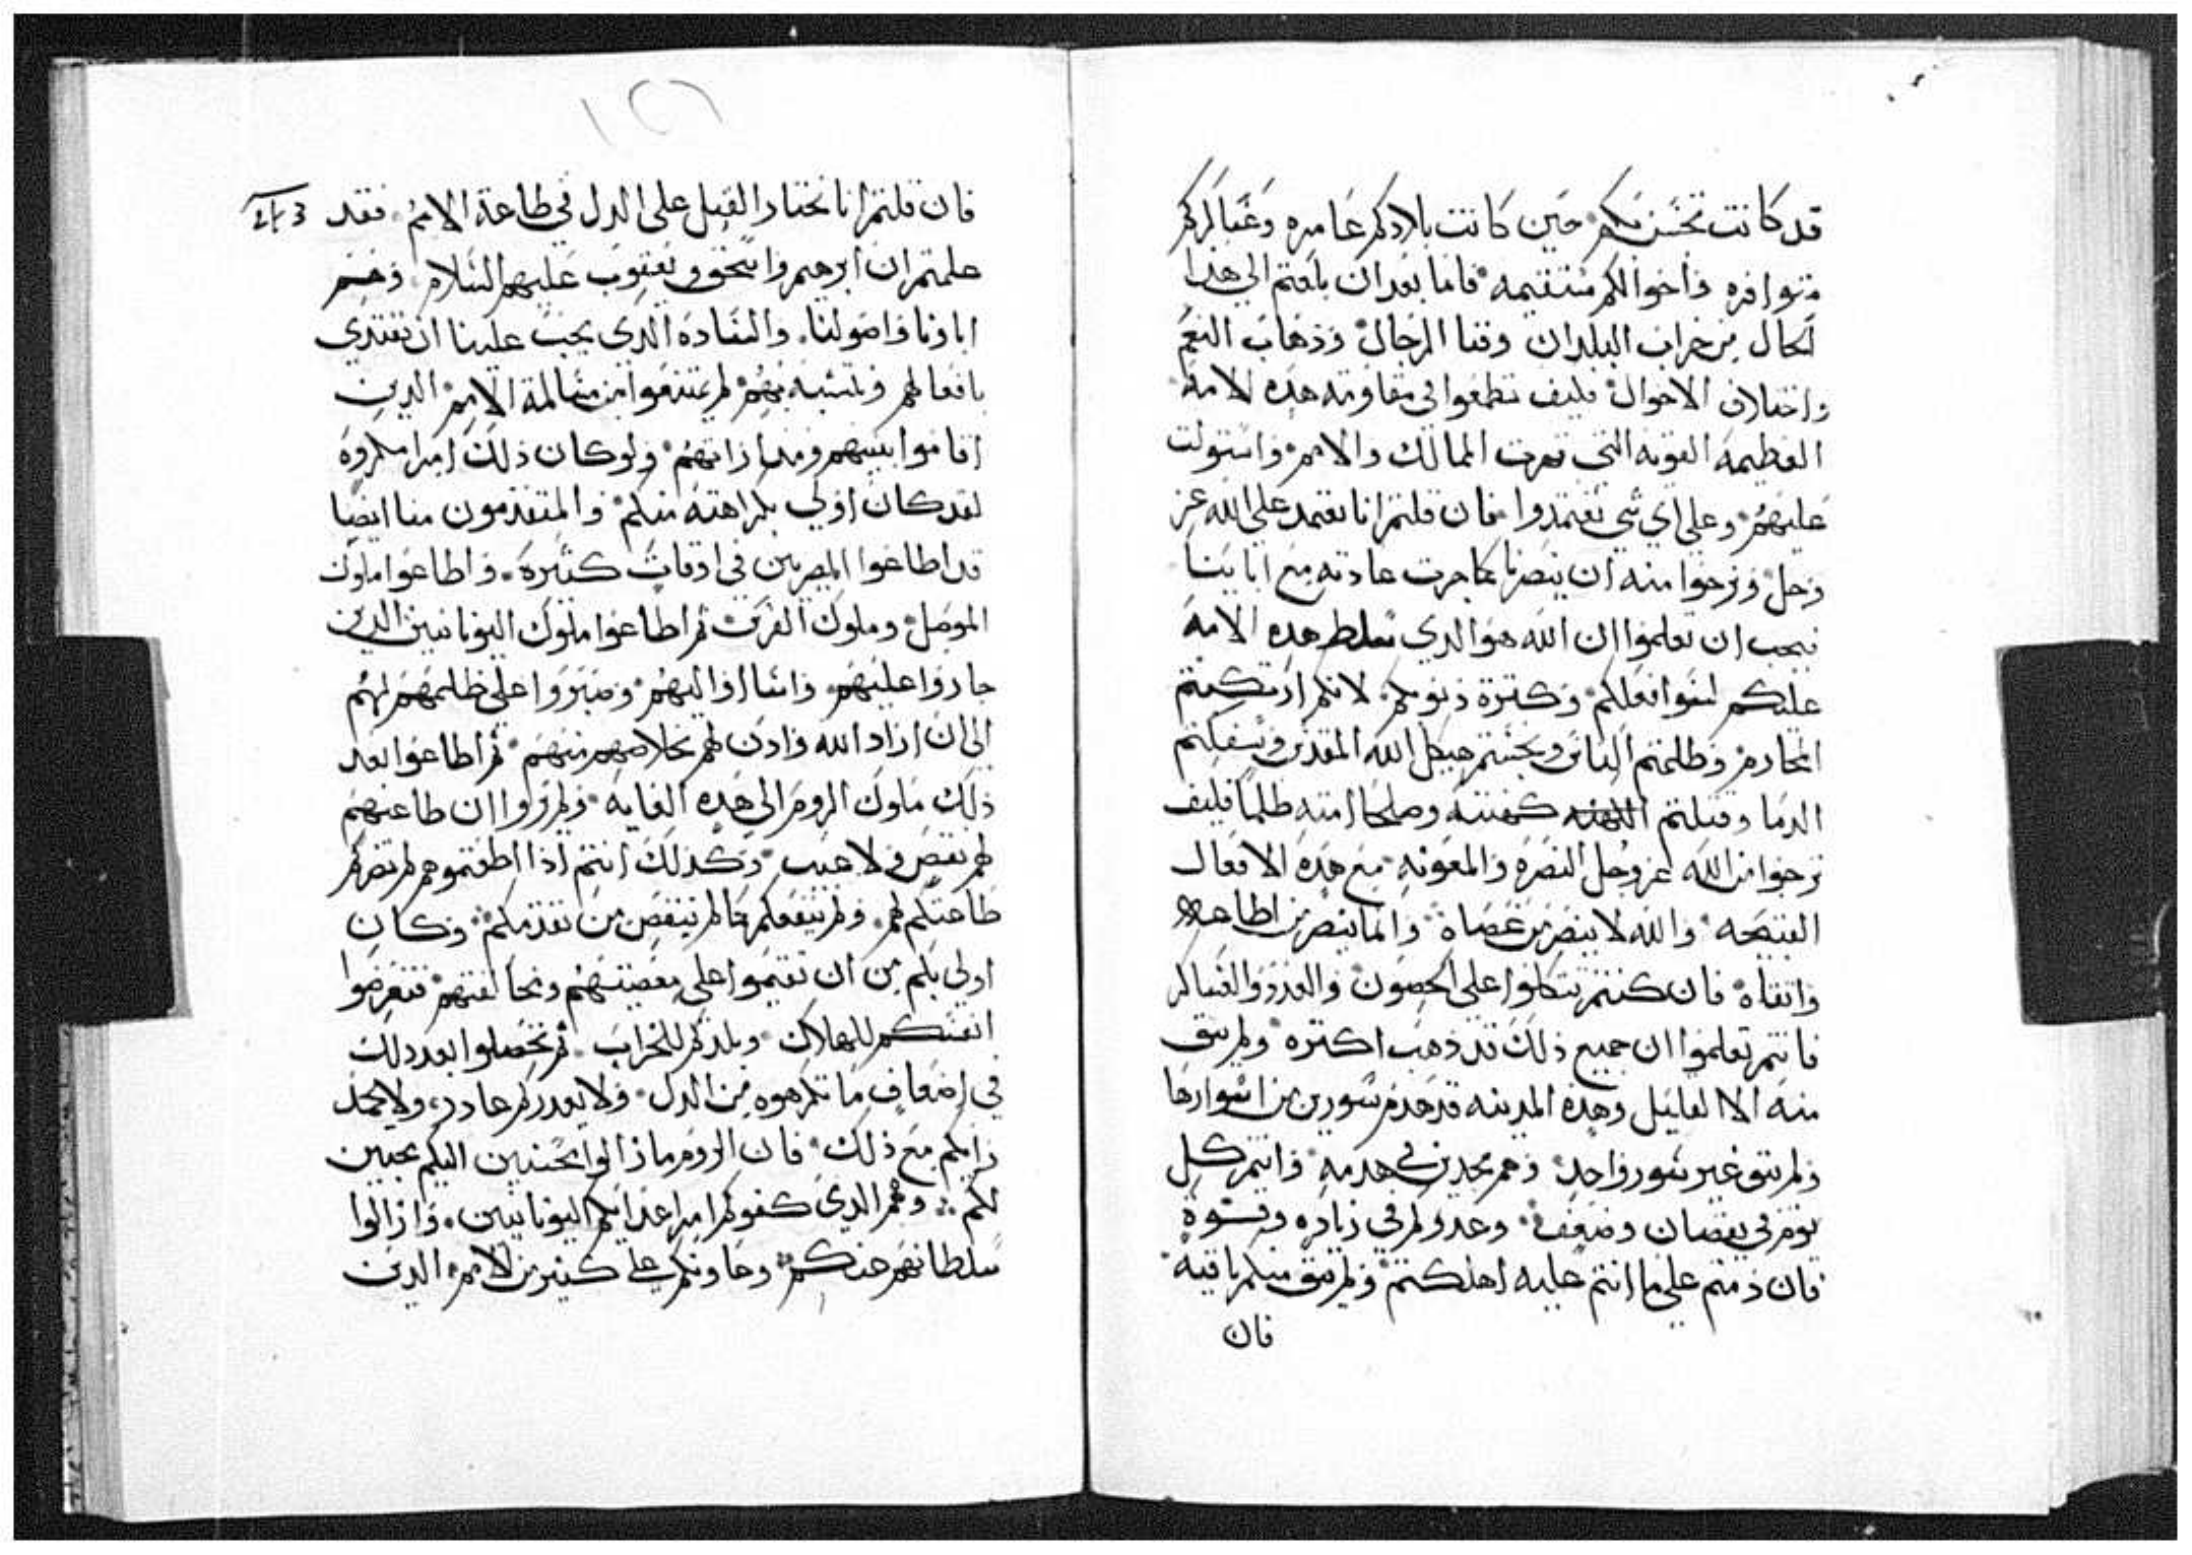 قد كانت تحسن منكم حين كانت بلادكم عامره وعساكركم
متوافره واحوالكم مستقيمه فاما بعد ان بلغتم الي هذا
الحال من خراب البلدان وفنا الرجال وذهاب النعم
واختلاف الاحوال فكيف تطمعوا في مقاومة هذه الامة
العظيمه القويه التي قهرت الممالك والامم واستولت
عليهم وعلي اي شي تعتمدوا فان قلتم انا نعتمد علي الله عز
وجل ونرجوا منه ان ينصرنا كما جرت عادته مع اباينا
فيجب ان تعلموا ان الله هو الدي سلط هده الامة
عليكم لسوا فعلكم وكترة دنوبكم لانكم ارتكبتم
المحارم وظلمتم الناس ونجستم هيكل الله المقدس وسفكتم
الدما وقتلتم كهنته وصلحا امته ظلما فكيف
ترجوا من الله عز وجل النصرة والمعونه مع هده الافعال
القبيحه والله لا ينصر من عصاه وانما ينصر من اطاعه
واتقاه فان كنتم تتكلوا علي الحصون والعدد والعساكر
فانتم تعلموا ان جميع ذلك قد ذهب اكتره ولم يبق
منه الا القليل وهده المدينه قد هدم سورين من اسوارها
ولم يبق غير سور واحد وهم مجدين في هدمه وانتم كل
يوم في نقصان وضعف وعدوكم في زياده وقوة
فان دمتم علي ما انتم عليه اهلكتم ولم يبق منكم باقيه
فان
١٥٢
فان قلتم انا نختار القتل علي الدل في طاعة الامم فقد
علمتم ان ابرهيم واسحق ويعقوب عليهم السلام وهم
اباونا واصولنا والساده الدي يجب علينا ان نقتدي
بافعالهم ونتشبه بهم لم يمتنعوا من مسالمة الامم الدين
اقاموا بينهم ومداراتهم ولو كان ذلك امرا مكروه
لقد كان اولي بكراهته منكم والمتقدمون منا ايضا
قد اطاعوا المصريين في اوقات كثيرة واطاعوا ملوك
الموصل وملوك الفرس ثم اطاعوا ملوك اليونانيين الدين
جاروا عليهم واساوا اليهم وصبروا علي ظلمهم لهم
الي ان اراد الله وادن لهم بخلاصهم منهم ثم اطاعوا بعد
ذلك ملوك الروم الي هده الغايه ولم يروا ان طاعتهم
لهم نقص ولا عيب وكذلك انتم اذا اطعتموهم لم تضركم
طاعتكم لهم ولم تنقصكم كما لم تنقص من تقدمكم وكان
اولي بكم من ان تقيموا علي معصيتهم ومخالفتهم فتعرضوا
انفسكم للهلاك وبلدكم للخراب ثم تحصلوا بعد دلك
في اضعاف ما تكرهوه من الدل ولا يعدركم عادر ولا يحمد
رايكم مع ذلك فان الروم ما زالوا محسنين اليكم محبين
لكم وهم الدي كفوكم امر اعدايكم اليونانيين وازالوا
سلطانهم عنكم وعاونكم علي كثير من الامم الدين